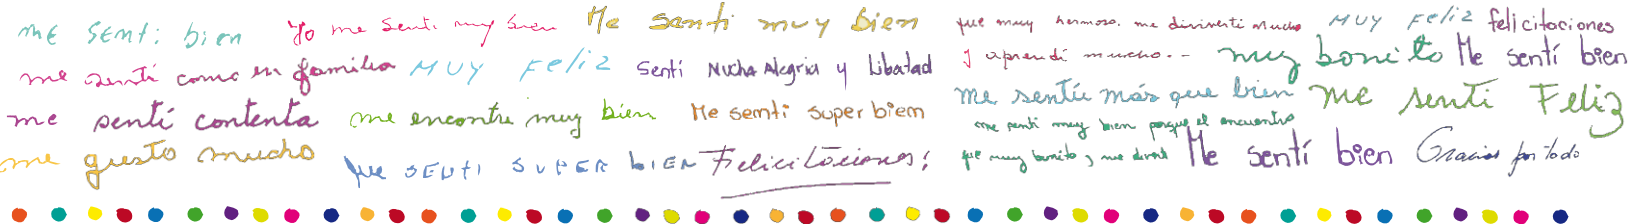 me sentí bien
Yo me sentí muy bien
Me sentí muy bien
fue muy hermoso. me divinerti mucho
y aprendí mucho...
MUY Feliz
felicitaciones
me sentí como en familia
MUY Feliz
Sentí Mucha Alegria y Libatad
muy bonito
Me sentí bien
me sentí contenta
me encontre muy bien
Me semti super biem
me sentíe más que bien
me senti Feliz
me gusto mucho
fue SENTI SUPER BIEN
Felicitaciones!
me senti muy bien porque el encuentro
fue muy bonito, me diverti
Me sentí bien
Gracias por todo